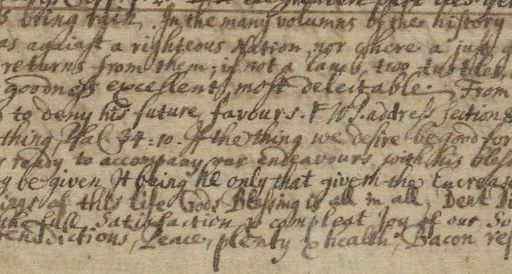 s being vain. In the many volumns of the history
as against a righteous Nation, nor where a just
returns from them; if not a lamb, two turtles,
goodness excellent, most delectable. From
to deny his future favours. address section
thing, Psal 34:10. If the thing we desire be good for
ready to accompany our endeavours, with his bless
be given. It being he only that giveth the Increase
ings of this life Gods Blessing is all in all, Deut
the full Satisfaction & compleat joy of our So
enedictions, Peace, plenty & health, Bacon